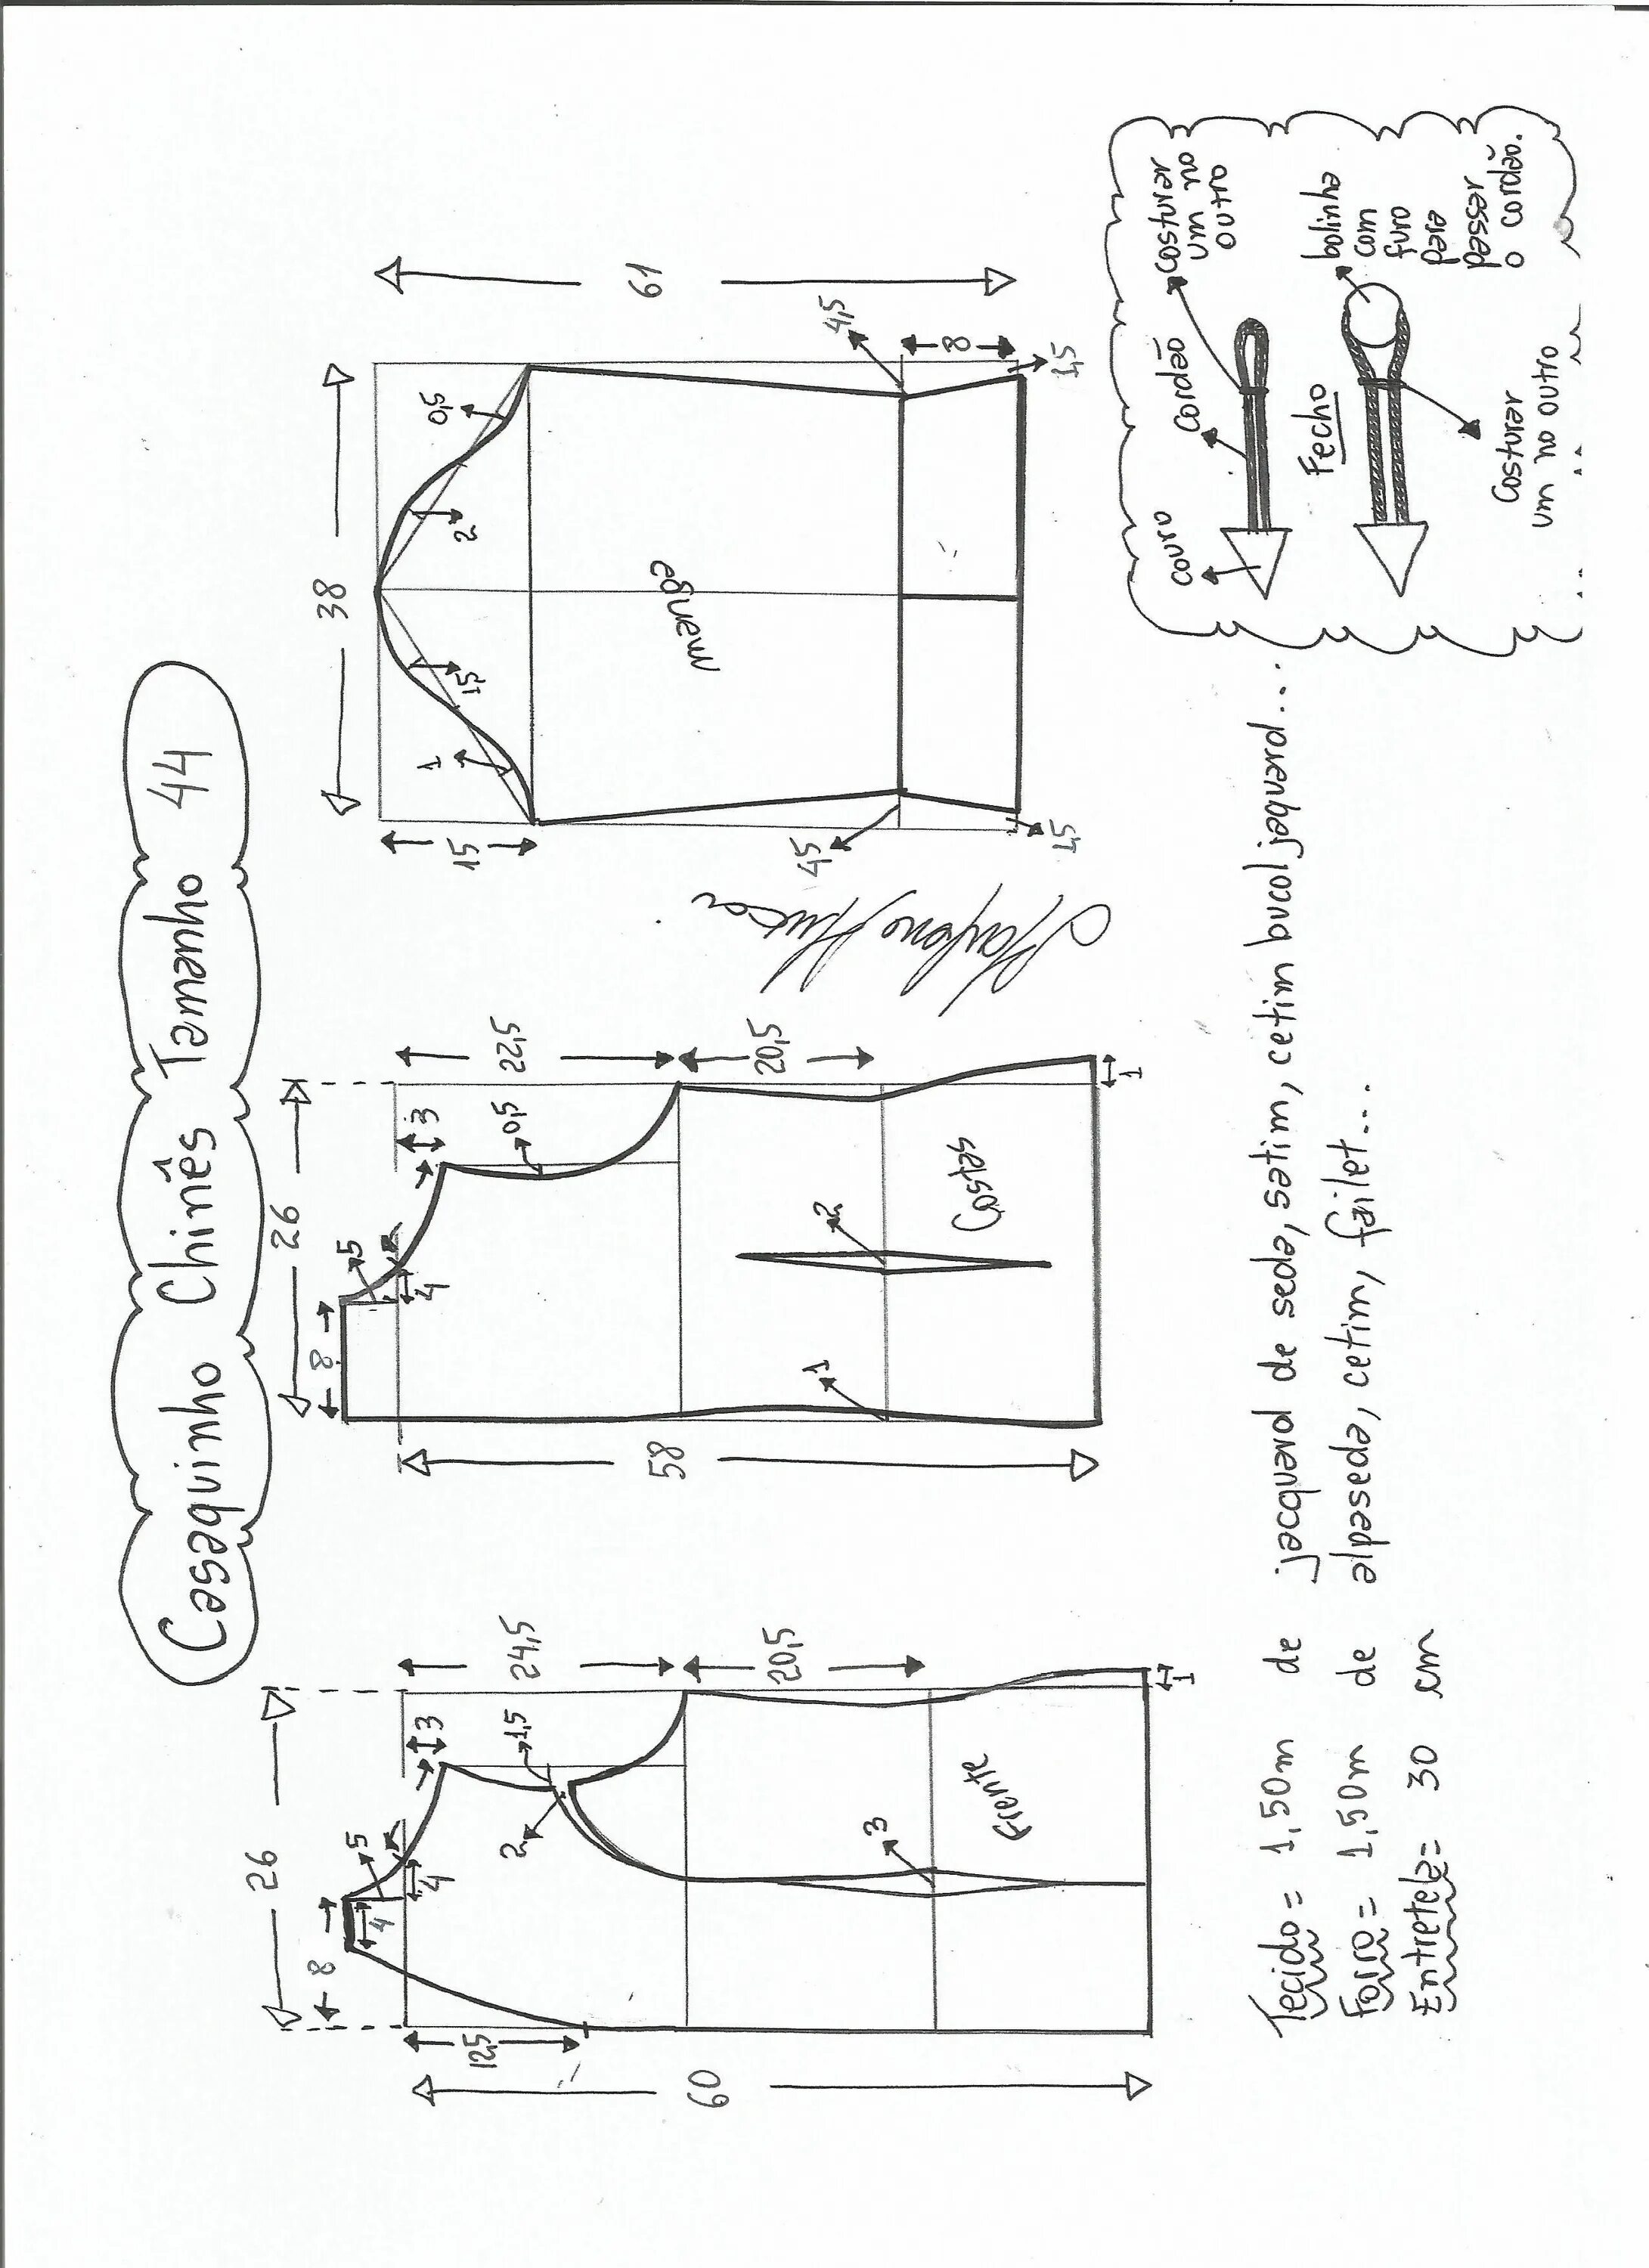 Casaquinho Chinês Tamanho 44
26
8
4
5
4
3
24,5
1,5
2
12,5
60
20,5
3
Frente
1
26
8
5
4
3
22,5
0,5
58
20,5
2
1
Costas
1
38
15
1
1,5
2
0,5
61
manga
4,5
4,5
8
1,5
1,5
Tecido = 1,50m de jacquard de seda, satim, cetim bucol jaquard...
Forro = 1,50m de alpaseda, cetim, failet...
Entretela = 30 cm
couro
cordão
costurar
um no
outro
Fecho
bolinha
com
furo
para
passar
o cordão.
Costurar
um no outro